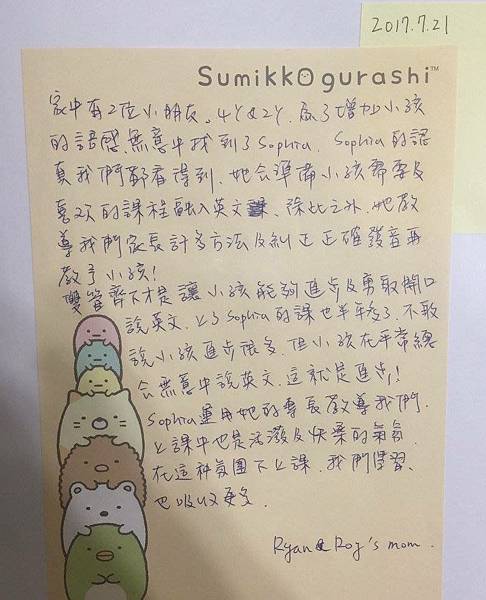 2017.7.21
Sumikko gurashi™
家中有2位小朋友。4Y&2Y. 為了增加小孩
的語感無意中找到了Sophia. Sophia的認
真我們都看得到. 她會準備小孩需要及
喜歡的課程融入英文課. 除此之外. 她教
導我們家長許多方法及糾正正確發音再
教予小孩!
雙管齊下才是讓小孩能夠進步及勇敢開口
說英文. 上了Sophia的課也半年多了. 不敢
說小孩進步很多. 但小孩在平常總
會無意中說英文. 這就是進步!
Sophia運用她的專長教導我們.
上課中也是活潑及快樂的氣氛.
在這種氛圍下上課. 我們學習、
也吸收更多.
Ryan & Roy's mom.